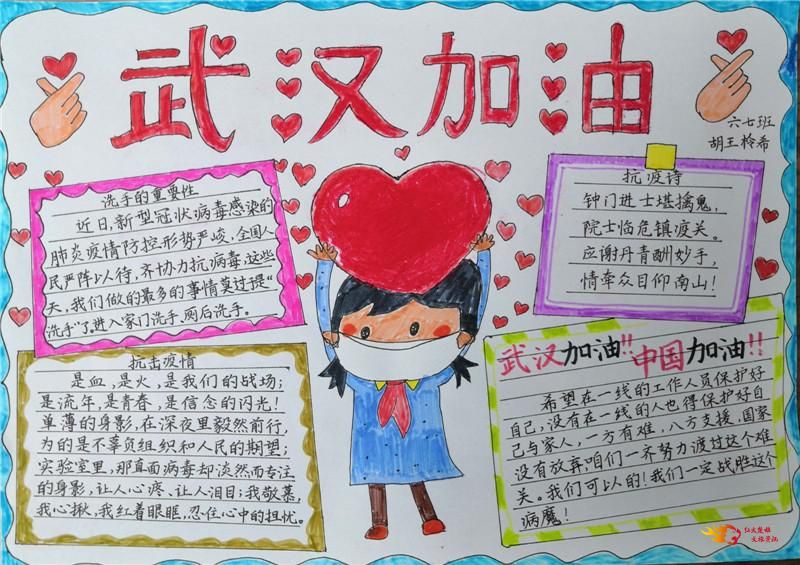 武汉加油
六七班
胡王柃希
洗手的重要性
近日,新型冠状病毒感染的
肺炎疫情防控形势严峻,全国人
民严阵以待,齐协力抗病毒,这些
天,我们做的最多的事情莫过“提
洗手”了,进入家门洗手,网后洗手。
抗疫诗
钟门进士堪擒鬼,
院士临危镇疫关。
应谢丹青酬妙手,
情牵众目仰南山!
抗击疫情
是血,是火,是我们的战场;
是流年,是青春,是信念的闪光!
单薄的身影,在深夜里毅然前行,
为的是不辜负组织和人民的期望;
实验室里,那直面病毒却淡然而专注
的身影,让人心疼,让人泪目;我敬慕,
我心揪,我红着眼眶,忍住心中的担忧。
武汉加油!!中国加油!!
希望在一线的工作人员保护好
自己,没有在一线的人也得保护好自
己与家人,一方有难,八方支援,国家
没有放弃咱们一齐努力渡过这个难
关。我们可以的!我们一定战胜这个
病魔!
红火楚雄
文旅资讯